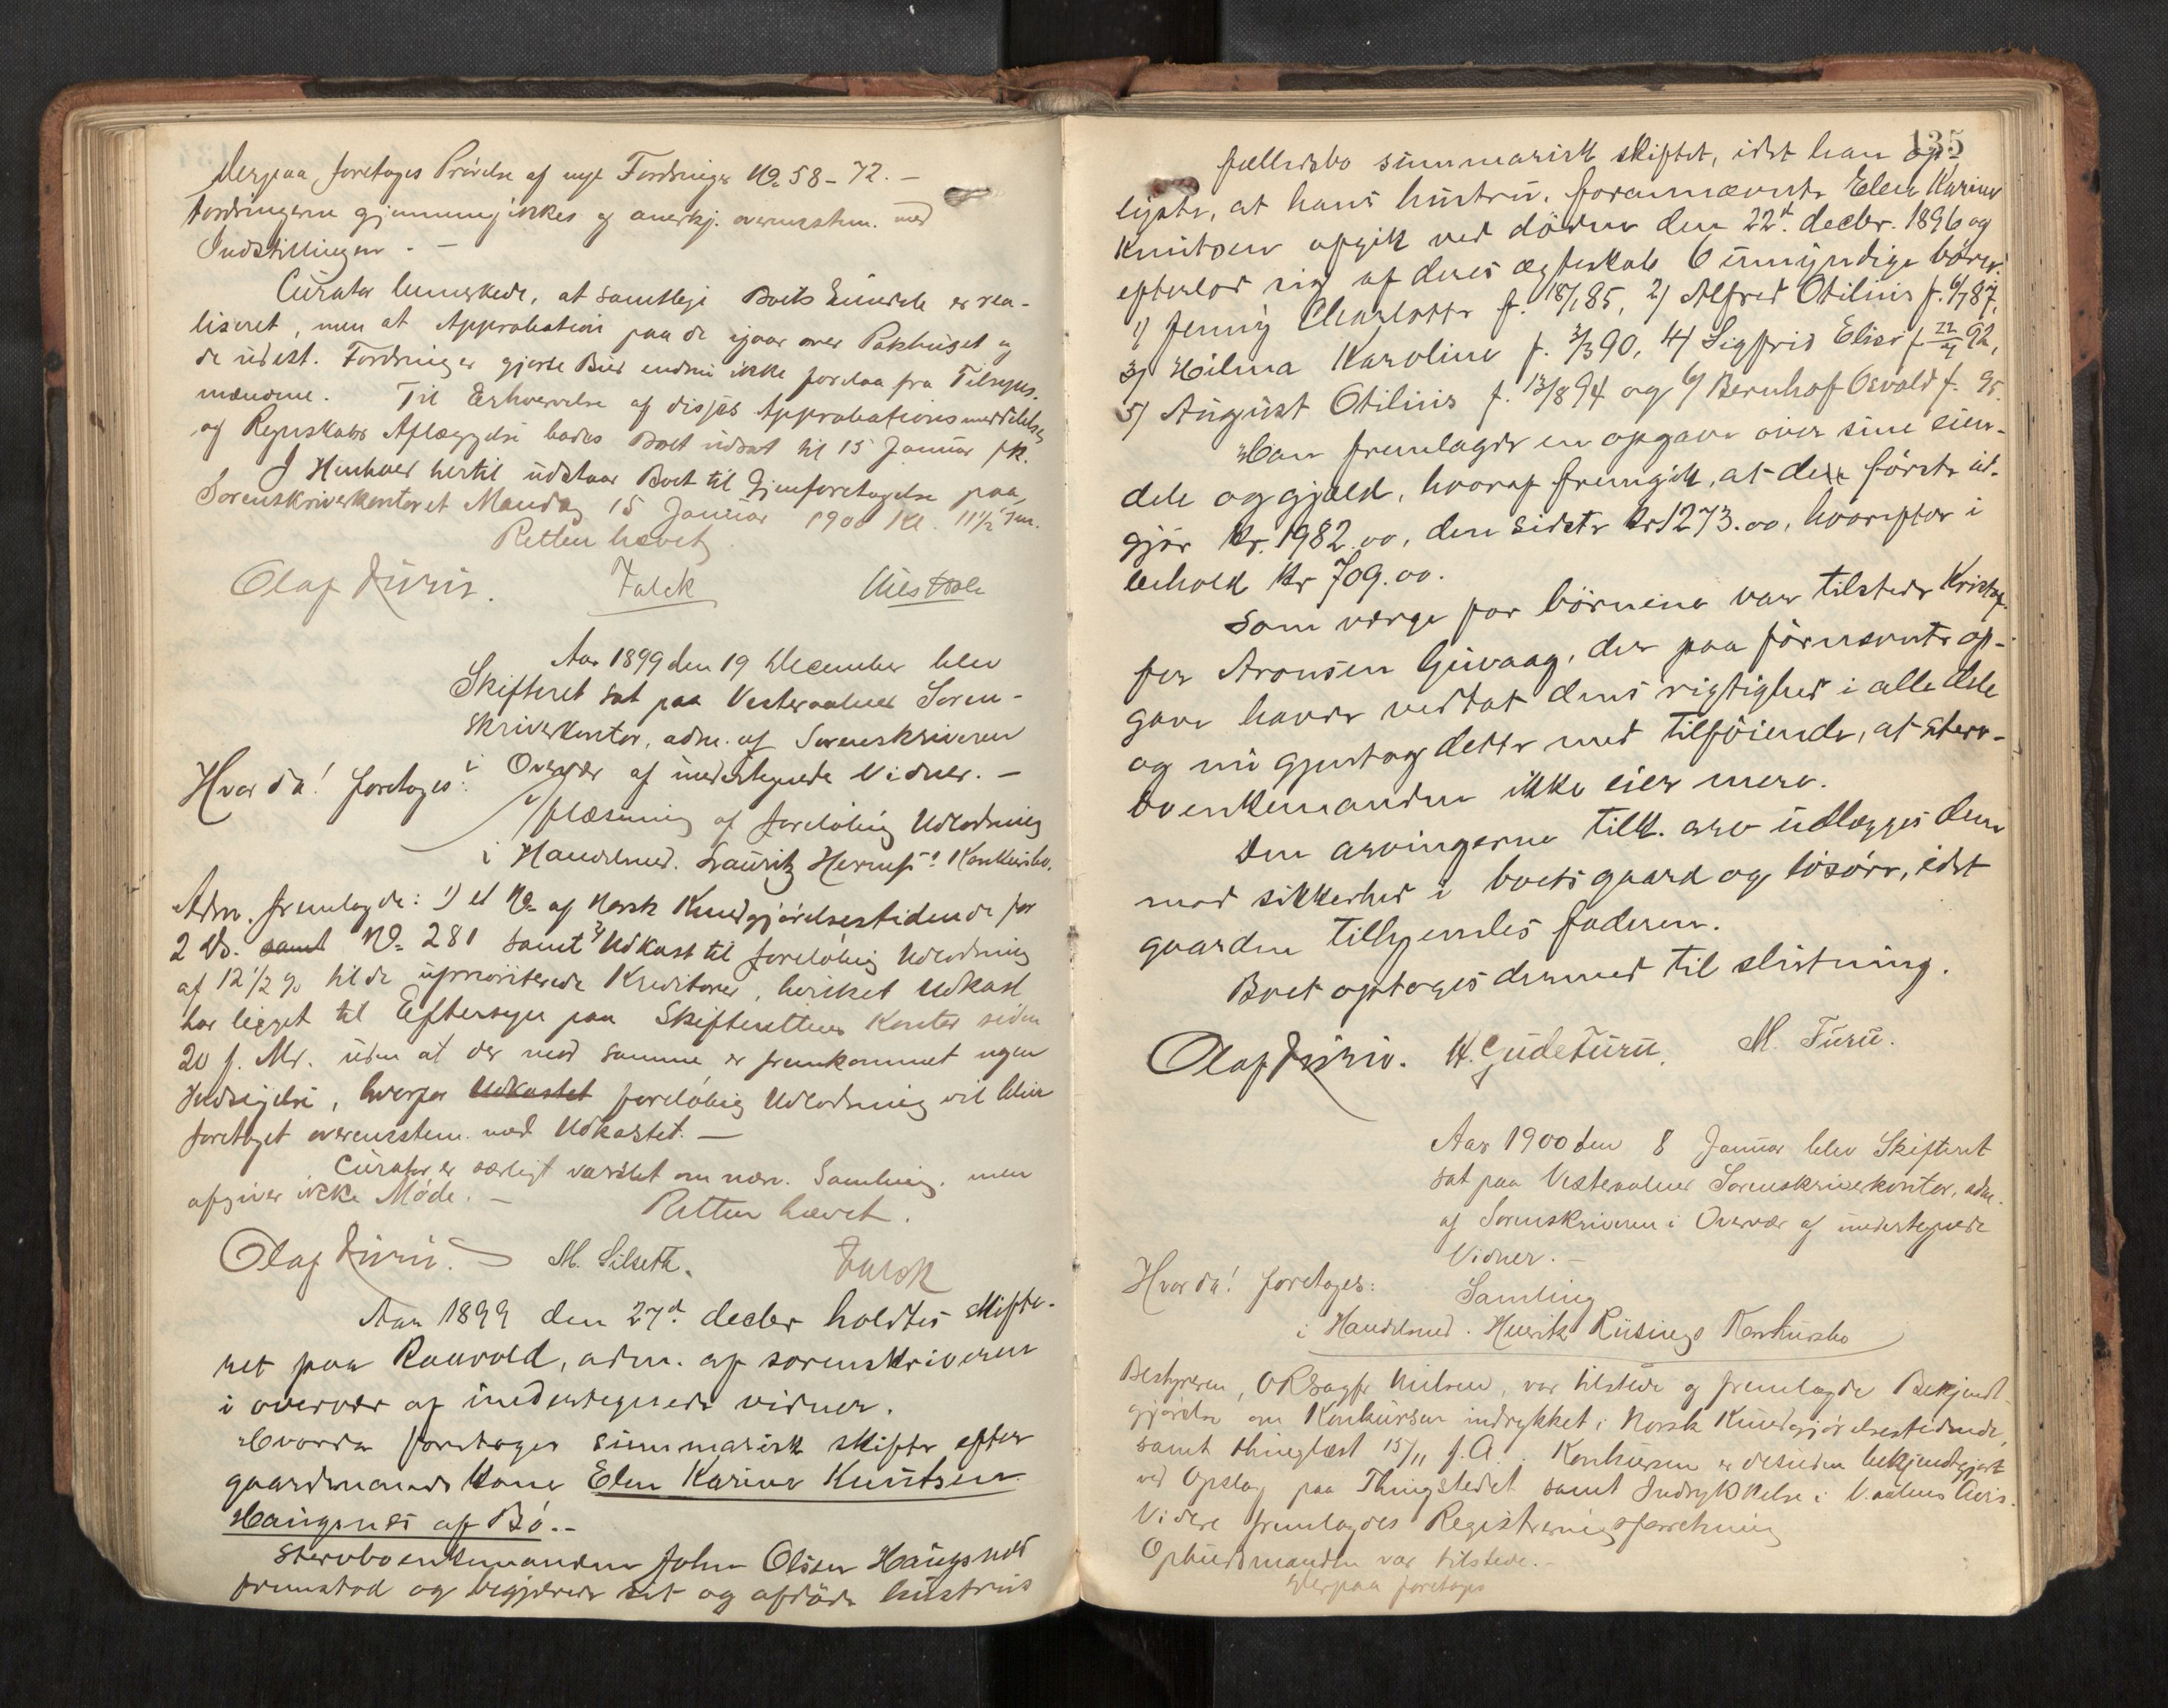 Derpaa foretoges Prøvelse af nye Fordringer No 58 - 72. -
Fordringerne gjennemgikkes og anerkj. overensstem. med
Indstillingen. -
Curator bemerkede, at samtlige Boets Eiendele er rea-
liseret, men at Approbation paa de igaar over Pakhuset og
de udest. Fordringer gjorte Bud endnu ikke forelaa fra Tilsyns-
mændene. Til Erhvervelse af disses Approbationsmeddelelse
og Regnskabs Aflæggelse bades Boet udsat til 15 Januar f.k.
I Henhold hertil udstaar Boet til Gjenforetagelse paa
Sorenskriverkontoret Mandag 15 Januar 1900 Kl. 11 1/2 Fm.
Retten hævet
Olaf . Falck
Aar 1899 den 19 December blev
Skifteret sat paa Vesteraalens Soren-
skriverkontor, adm. af Sorenskriveren
i Overvær af undertegnede Vidner. -
Hvorda! foretoges:
Oplæsning af foreløbig Udlodning
i Handelsmd. Lauritz Konkursbo.
Adm. fremlagde: 1) et No af Norsk Kundgjørelsestidende for
2 Ds. samt No 281 samt 2) Udkast til foreløbig Udlodning
af 12 1/2 % til de uprioriterede Kreditorer, hvilket Udkast
har ligget til Eftersyn paa Skifterettens Kontor siden
20 f. Md. uden at der mod samme er fremkommet nogen
Indsigelse, hvorfor Udkastet foreløbig Udlodning vil blive
foretaget overensstem. med Udkastet. -
Curator er særligt varslet om nærv. Samling, men
afgiver ikke Møde. -
Retten hævet.
Olaf . M. Silseth. Falck
Aar 1899 den 27d. decbr holdtes skifte-
ret paa Ramvold, adm. af sorenskriveren
i overvær af undertegnede vidner.
Hvorda foretoges summarisk skifte efter
gaardmands kone Elen Karine Knutsen
Haugsnes af Bø. -
Stervboenkemanden John Olsen Haugsnes
fremstod og begjærede sit og afdøde hustrus
135
fællesbo summarisk skiftet, idet han op-
lyste, at hans hustru, forannævnte Elen Karine
Knutsen afgik ved døden den 22d. decbr. 1896 og
efterlod sig af deres ægteskab 6 umyndige børn:
1) Jenny Charlotte f. 18/1 85, 2) Alfred Otilius f. 6/7 87,
3) Hilma Karoline f. 3/3 90, 4) Sigfrid Elise f. 22/4 92,
5) August Otilius f. 13/8 94 og 6) Bernhof Osvald f. 95.
Han fremlagde en opgave over sine eien-
dele og gjæld, hvoraf fremgik, at den første ud-
gjør kr. 1982.00, den sidste kr 1273.00, hvorefter i
behold kr 709.00.
Som værge for børnene var tilstede Kristof-
fer Aronsen Guvaag, der paa førnævnte op-
gave havde vedtat dens rigtighed i alle dele
og nu gjentog dette med tilføiende, at sterv-
boenkemanden ikke eier mere.
Den arvingerne tilk. arv udlægges dem
mod sikkerhed i boets gaard og løsøre, idet
gaarden tilhjemles faderen.
Boet optoges dermed til slutning.
Olaf . K. Gude Furu. M. Furu.
Aar 1900 den 8 Januar blev Skifteret
sat paa Vesteraalens Sorenskriverkontor, adm.
af Sorenskriveren i Overvær af undertegnede
Vidner. -
Hvorda! foretoges:
Samling
i Handelsmd. Henrik Riisings Konkursbo
Bestyreren, ORsagfr Nielsen, var tilstede og fremlagde Bekjendt-
gjørelse om Konkursen indrykket i Norsk Kundgjørelsestidende,
samt thinglæst 15/11 f.A. Konkursen er desuden bekjendtgjort
ved Opslag paa Thingstedet samt Indrykkelse i V.aalens Avis.
Videre fremlagdes Registreringsforretning
Opbudsmanden var tilstede. -
Derpaa foretoges